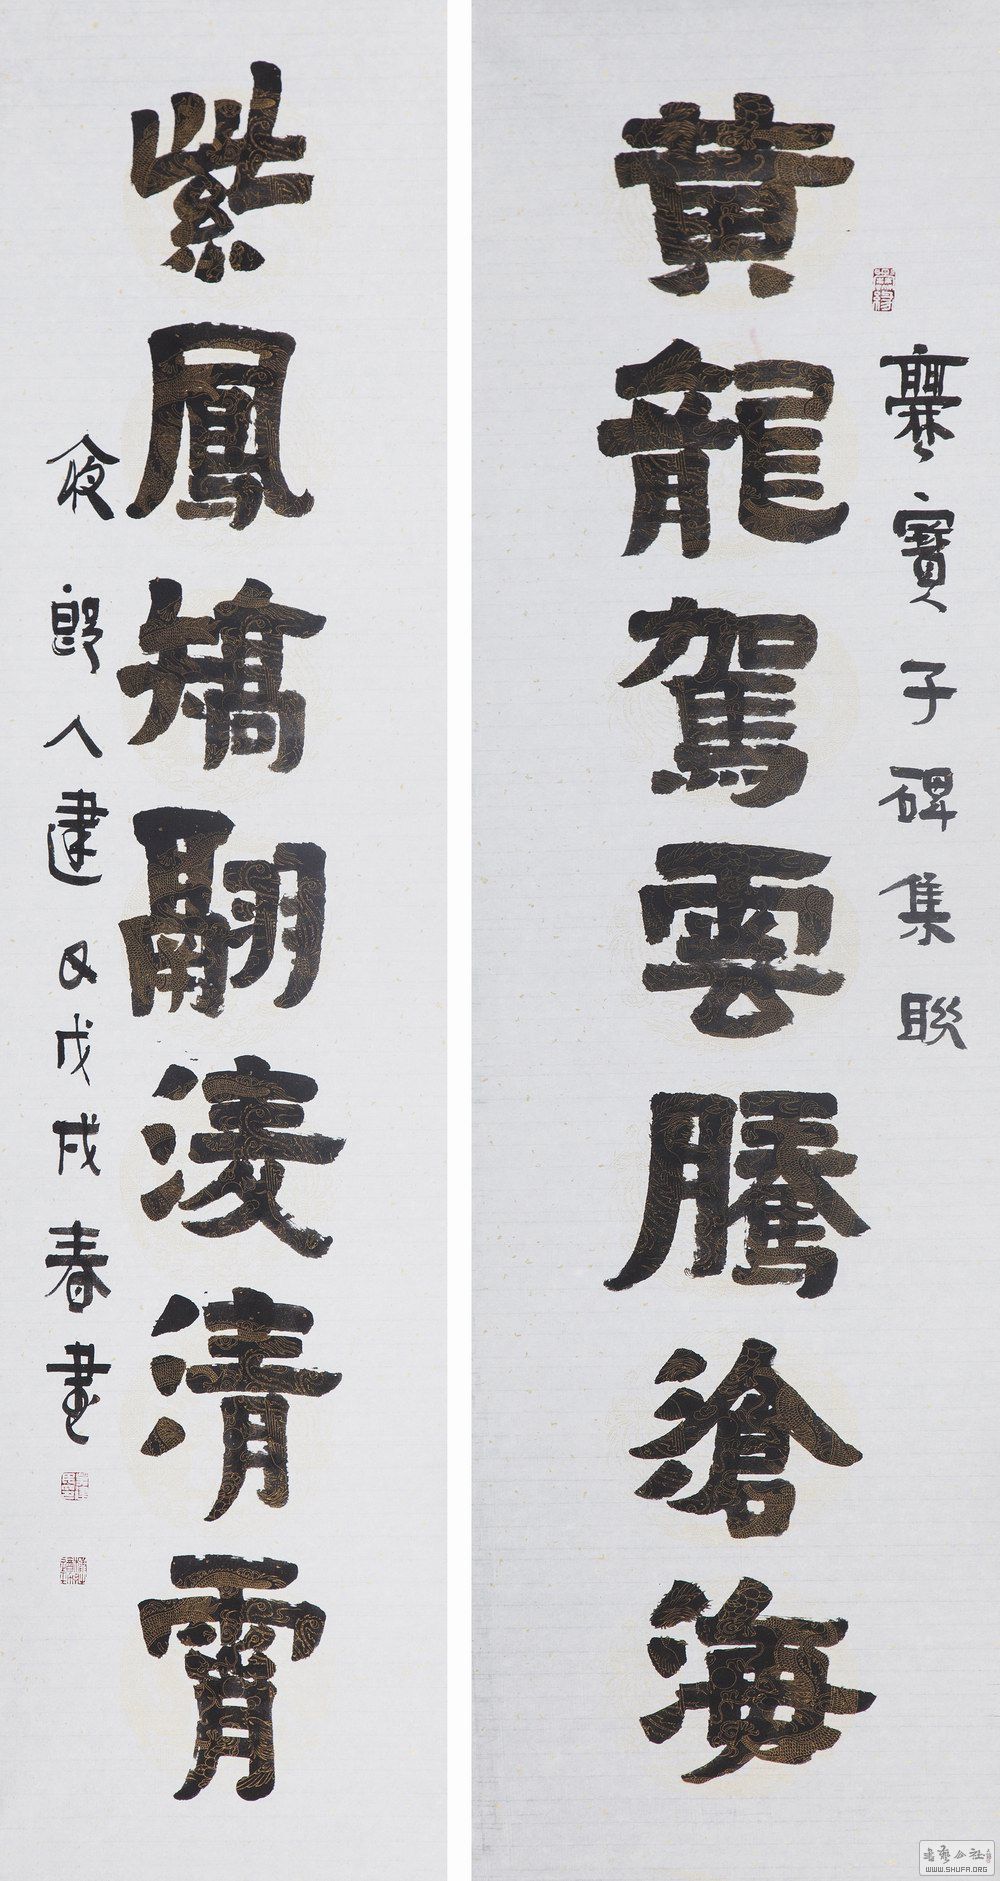 爨寶子碑集聯
黃龍駕雲騰滄海
紫鳳矯翮淩清霄
夜郎人建 戊戌春書
WWW.SHUFA.ORG